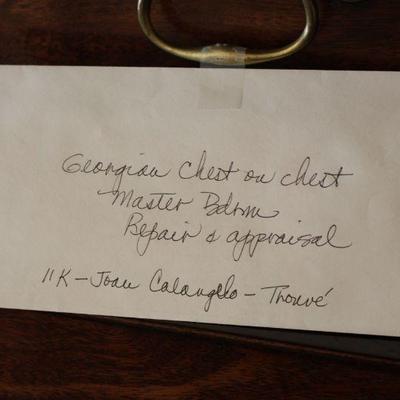 Georgian Chest on Chest
Master Bdrm
Repair & appraisal
11K - Joan Calangelo - Thouvé